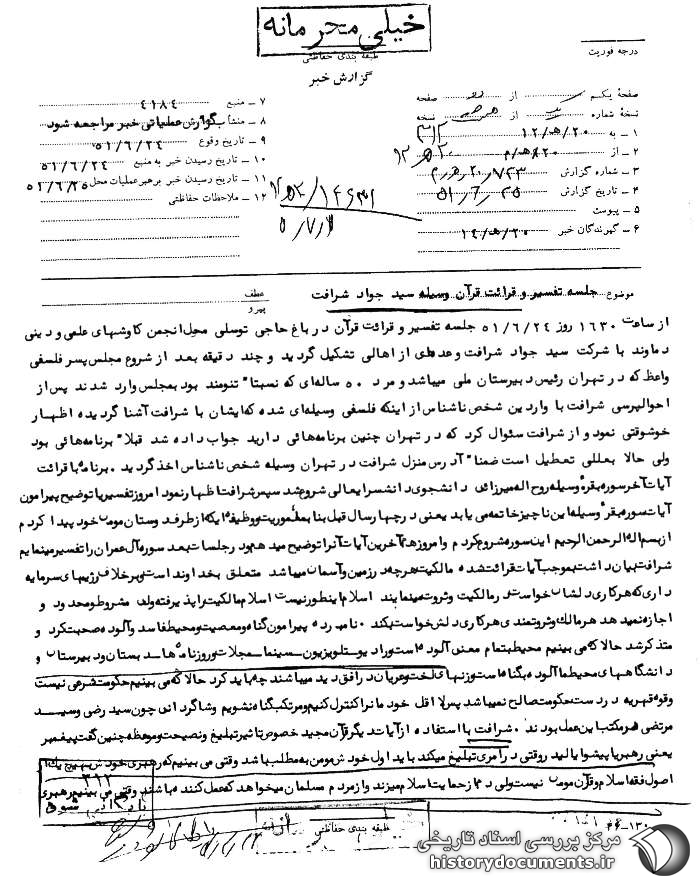 خیلی محرمانه
طبقه بندی حفاظتی
گزارش خبر
درجه فوریت
صفحهٔ یکم از دو صفحه
نسخهٔ شماره از نسخه
۱ ـ به ۲۰/هـ/۱۲ ۳۱۲
۲ ـ از ۸۲۰/هـ/م
۳ ـ شماره گزارش ۷۲۳
۴ ـ تاریخ گزارش ۵۱/۶/۲۵
۵ ـ پیوست
۶ ـ گیرندگان خبر ۲۰/هـ/۱۴
۷ ـ منبع ۴۱۸۴
۸ ـ منشأ بگزارش عملیاتی خبر مراجعه شود
۹ ـ تاریخ وقوع ۵۱/۶/۲۴
۱۰ ـ تاریخ رسیدن خبر به منبع ۵۱/۶/۲۴
۱۱ ـ تاریخ رسیدن خبر برهبر عملیات محل ۵۱/۶/۲۵
۱۲ ـ ملاحظات حفاظتی
موضوع جلسه تفسیر و قرائت قرآن وسیله سید جواد شرافت
عطف
پیرو
از ساعت ۱۶۳۰ روز ۵۱/۶/۲۴ جلسه تفسیر و قرائت قرآن در باغ حاجی توسلی محل انجمن کاوشهای علمی و دینی
دماوند با شرکت سید جواد شرافت و عده‌ای از اهالی تشکیل گردید و چند دقیقه بعد از شروع مجلس پسر فلسفی
واعظ که در تهران رئیس دبیرستان ملی میباشد و مرد ۵۰ ساله‌ای که نسبتا" تنومند بود بمجلس وارد شدند پس از
احوالپرسی شرافت با واردین شخص ناشناس از اینکه فلسفی وسیله‌ای شده که ایشان با شرافت آشنا گردیده اظهار
خوشوقتی نمود و از شرافت سئوال کرد که در تهران چنین برنامه‌هائی دارید جواب داده شد قبلا" برنامه‌هائی بود
ولی حالا بعللی تعطیل است ضمنا" آدرس منزل شرافت در تهران وسیله شخص ناشناس اخذ گردید ۰ برنامه با قرائت
آیات آخر سوره بقره وسیله روح اله میرزائی دانشجوی دانشسرایعالی شروع شد سپس شرافت اظهار نمود امروز تفسیر یا توضیح پیرامون
آیات سوره بقره وسیله این ناچیز خاتمه می یابد یعنی در چهار سال قبل بنا بمأموریت و وظیفه ایکه از طرف دوستان مومن خود پیدا کردم
از بسم اله الرحمن الرحیم این سوره شروع کردم و امروز هم تا آخرین آیات آنرا توضیح میدهم و در جلسات بعد سوره آل عمران را تفسیر مینمایم
شرافت بیان داشت بموجب آیات قرائت شده مالکیت هرچه در زمین و آسمان میباشد متعلق بخداوند است و برخلاف رژیمهای سرمایه
داری که هرکاری دلشان خواست در مالکیت و ثروت مینمایند اسلام اینطور نیست اسلام مالکیت را پذیرفته ولی مشروط و محدود و
اجازه نمیدهد هر مالک و ثروتمندی هرکاری دلش خواست بکند ۰ نامبرده پیرامون گناه و معصیت و محیط فاسد و آلوده صحبت کرد و
متذکر شد حالا که می بینیم محیط بتمام معنی آلوده است و رادیو تلویزیون ـ سینما ـ مجلات و روزنامه‌ها ـ دبستان و دبیرستان و
دانشگاههای محیط ما آلوده بگناه است و زنهای لخت و عریان در افق دید میباشند چه باید کرد حالا که می بینیم حکومت شرعی نیست
وقوه قهریه در دست حکومت صالح نمیباشد پس لااقل خودمان را کنترل کنیم و مرتکب گناه نشویم و شاگردانی چون سید رضی و سید
مرتضی هم مکتب این عمل بودند ۰ شرافت با استفاده از آیات دیگر قرآن مجید خصوص تاثیر تبلیغ و نصیحت و موعظه چنین گفت پیغمبر
یعنی رهبر یا پیشوا یا لیدر وقتی در امری تبلیغ میکند باید اول خودش مومن به مطلب باشد وقتی می بینیم که رهبری خودش بهیچ یک از
اصول فقه اسلام و قرآن مومن نیست ولی دم از حمایت اسلام میزند و از مردم مسلمان میخواهد که عمل کننده باشند وقتی می بینیم رهبری
۳۱۲
طبقه بندی حفاظتی
۲۶-۱۳۰
مرکز بررسی اسناد تاریخی
historydocuments.ir